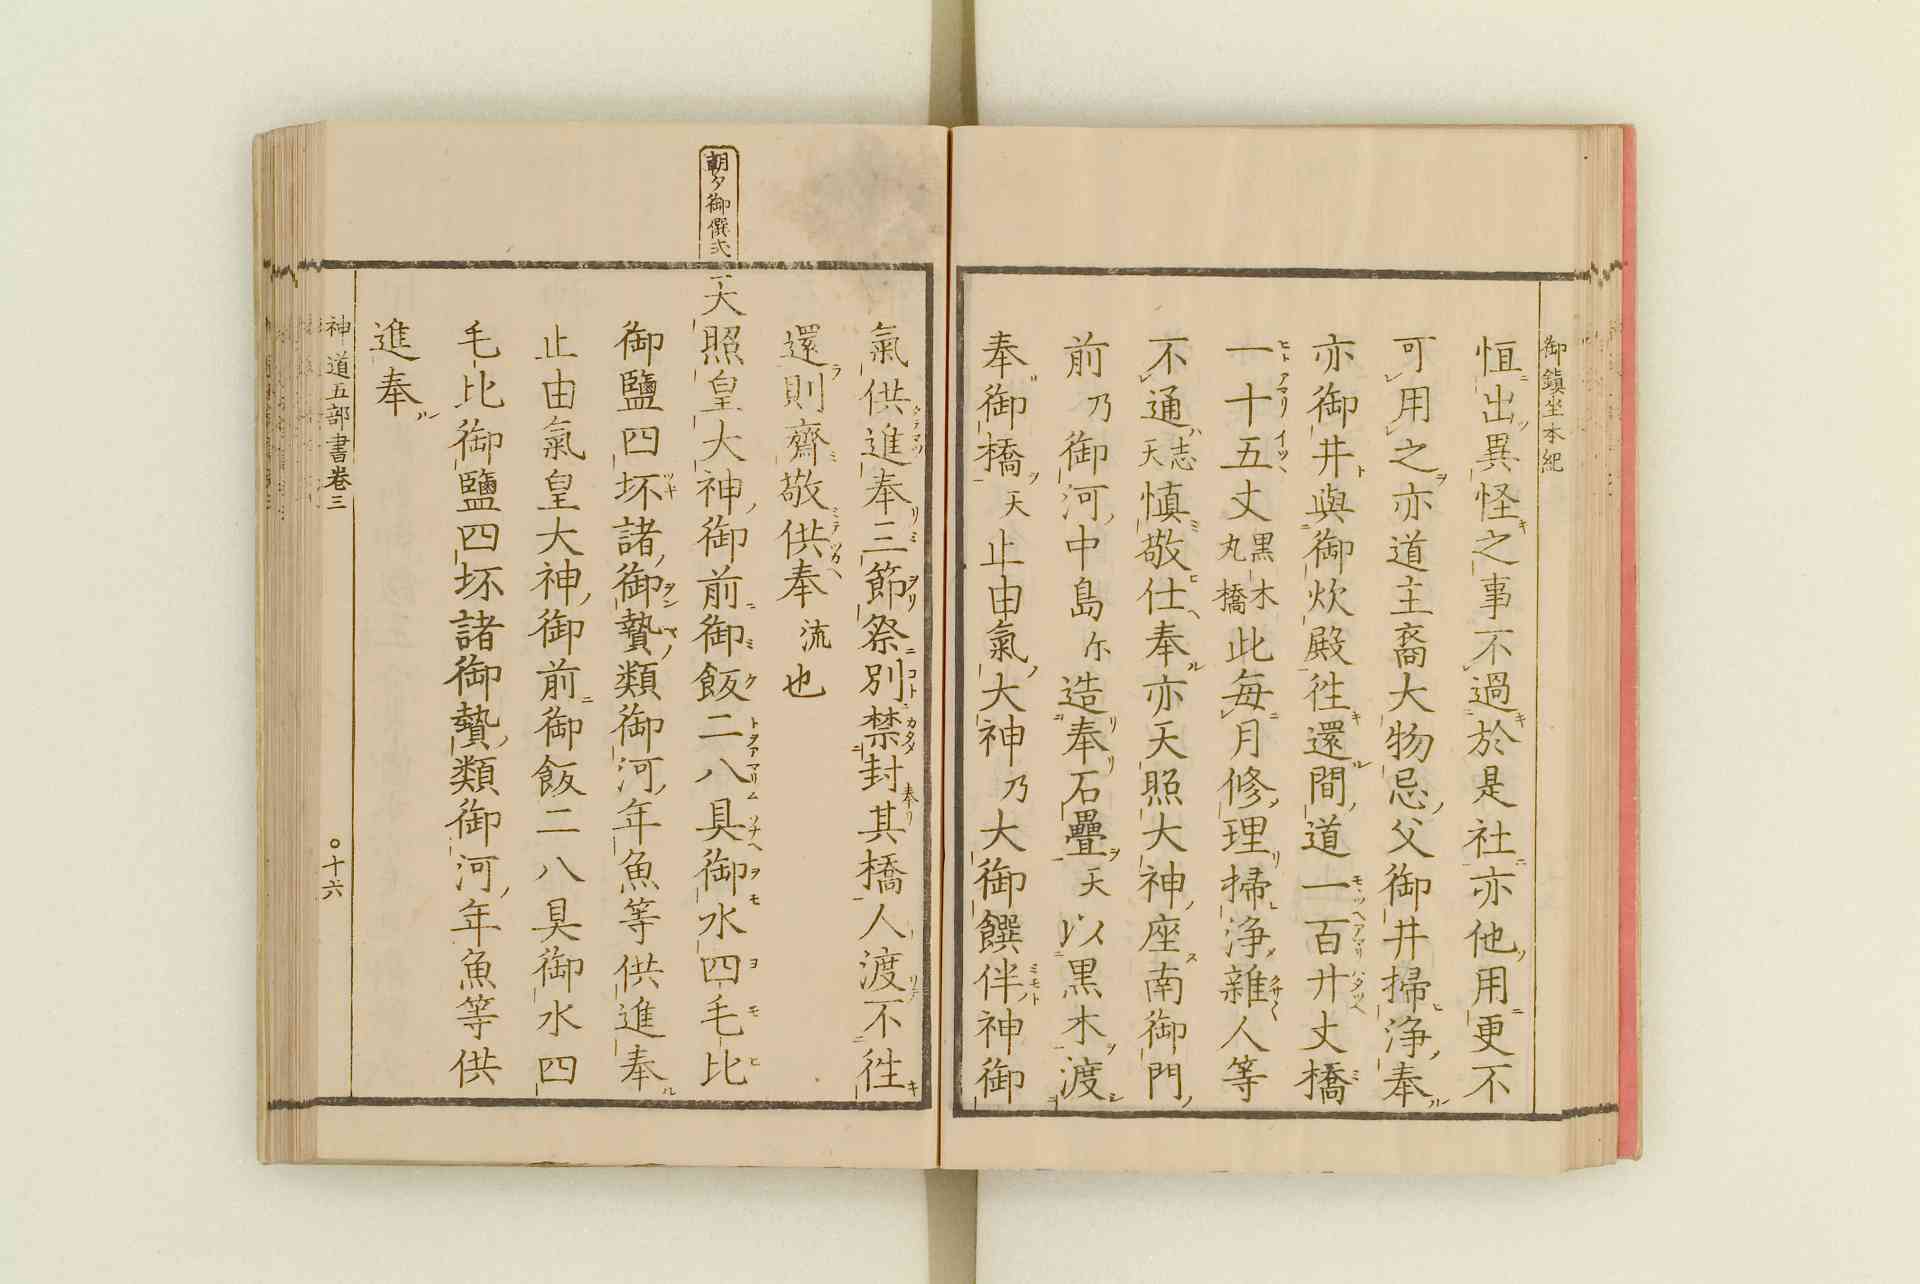 御鎮坐本紀
恒出異怪之事不過於是社亦他用更不
可用之亦道主裔大物忌父御井掃浄奉
亦御井與御炊殿徃還間道一百廿丈橋
一十五丈黒木丸橋此毎月修理掃浄雜人等
不通志天慎敬仕奉亦天照大神座南御門
前乃御河中島尓造奉石疊天以黒木渡
奉御橋天止由氣大神乃大御饌伴神御
氣供進奉三節祭別禁封其橋人渡不徃
還則齋敬供奉流也
朝夕御饌式
一大照皇大神御前御飯二八具御水四毛比
御鹽四坏諸御贄類御河年魚等供進奉
止由氣皇大神御前御飯二八具御水四
毛比御鹽四坏諸御贄類御河年魚等供
進奉
神道五部書巻三
○十六